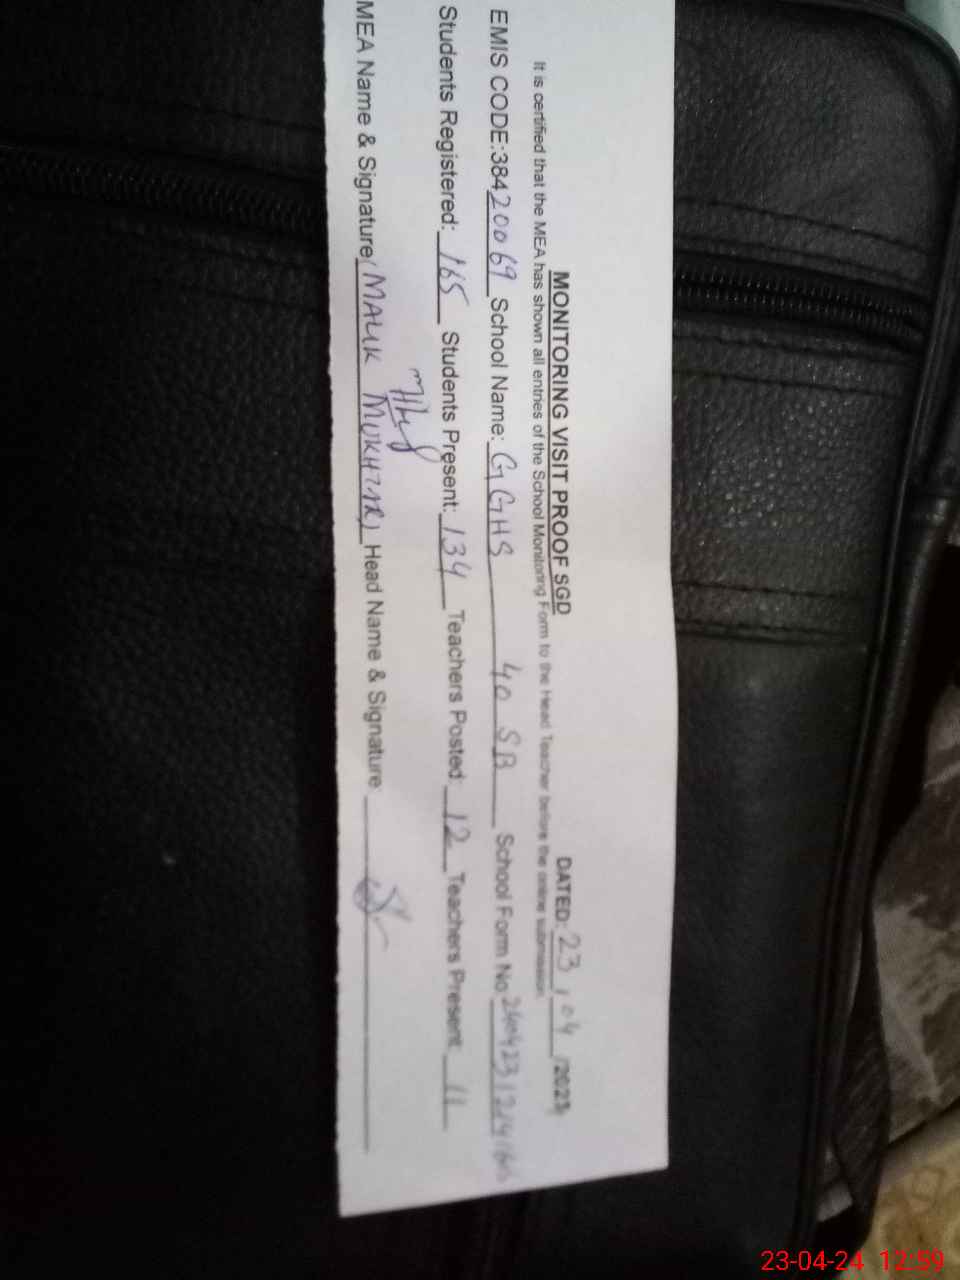 MONITORING VISIT PROOF SGD DATED: 23/04/2023
It is certified that the MEA has shown all entries of the School Monitoring Form to the Head Teacher before the online submission.
EMIS CODE:38420069 School Name: GGHS 40 SB School Form No
Students Registered: 165 Students Present: 134 Teachers Posted: 12 Teachers Present: 11
MEA Name & Signature (MALIK MUKHTAR) Head Name & Signature:
23-04-24 12:59